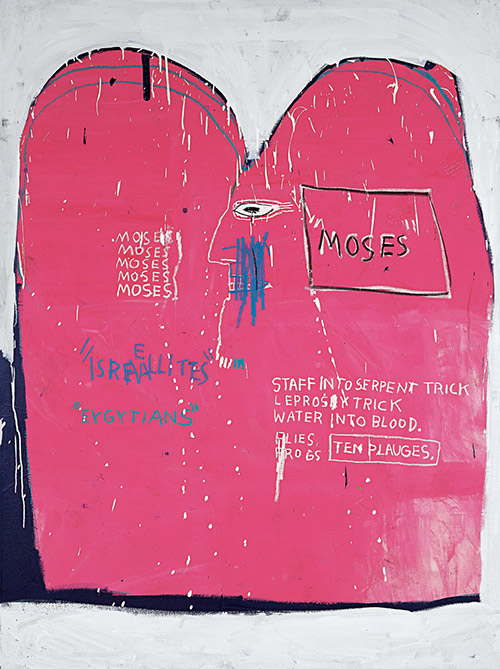 MOSES
MOSES
MOSES
MOSES
MOSES
MOSES.
"ISREALLITES"
E
"EYGYTIANS"
STAFF INTO SERPENT TRICK
LEPROSY TRICK
WATER INTO BLOOD.
FLIES.
FROGS
TEN PLAUGES.